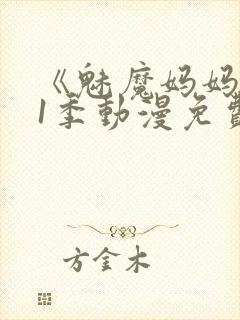 《魅魔妈妈
1季動漫免費
方金木